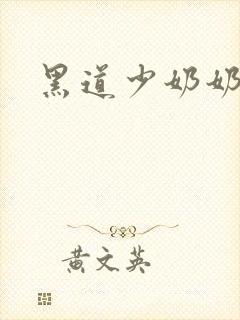 黑道少奶奶
黄文英